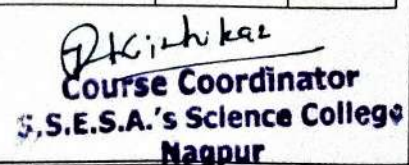 Course Coordinator
S.S.E.S.A.'s Science College
Nagpur